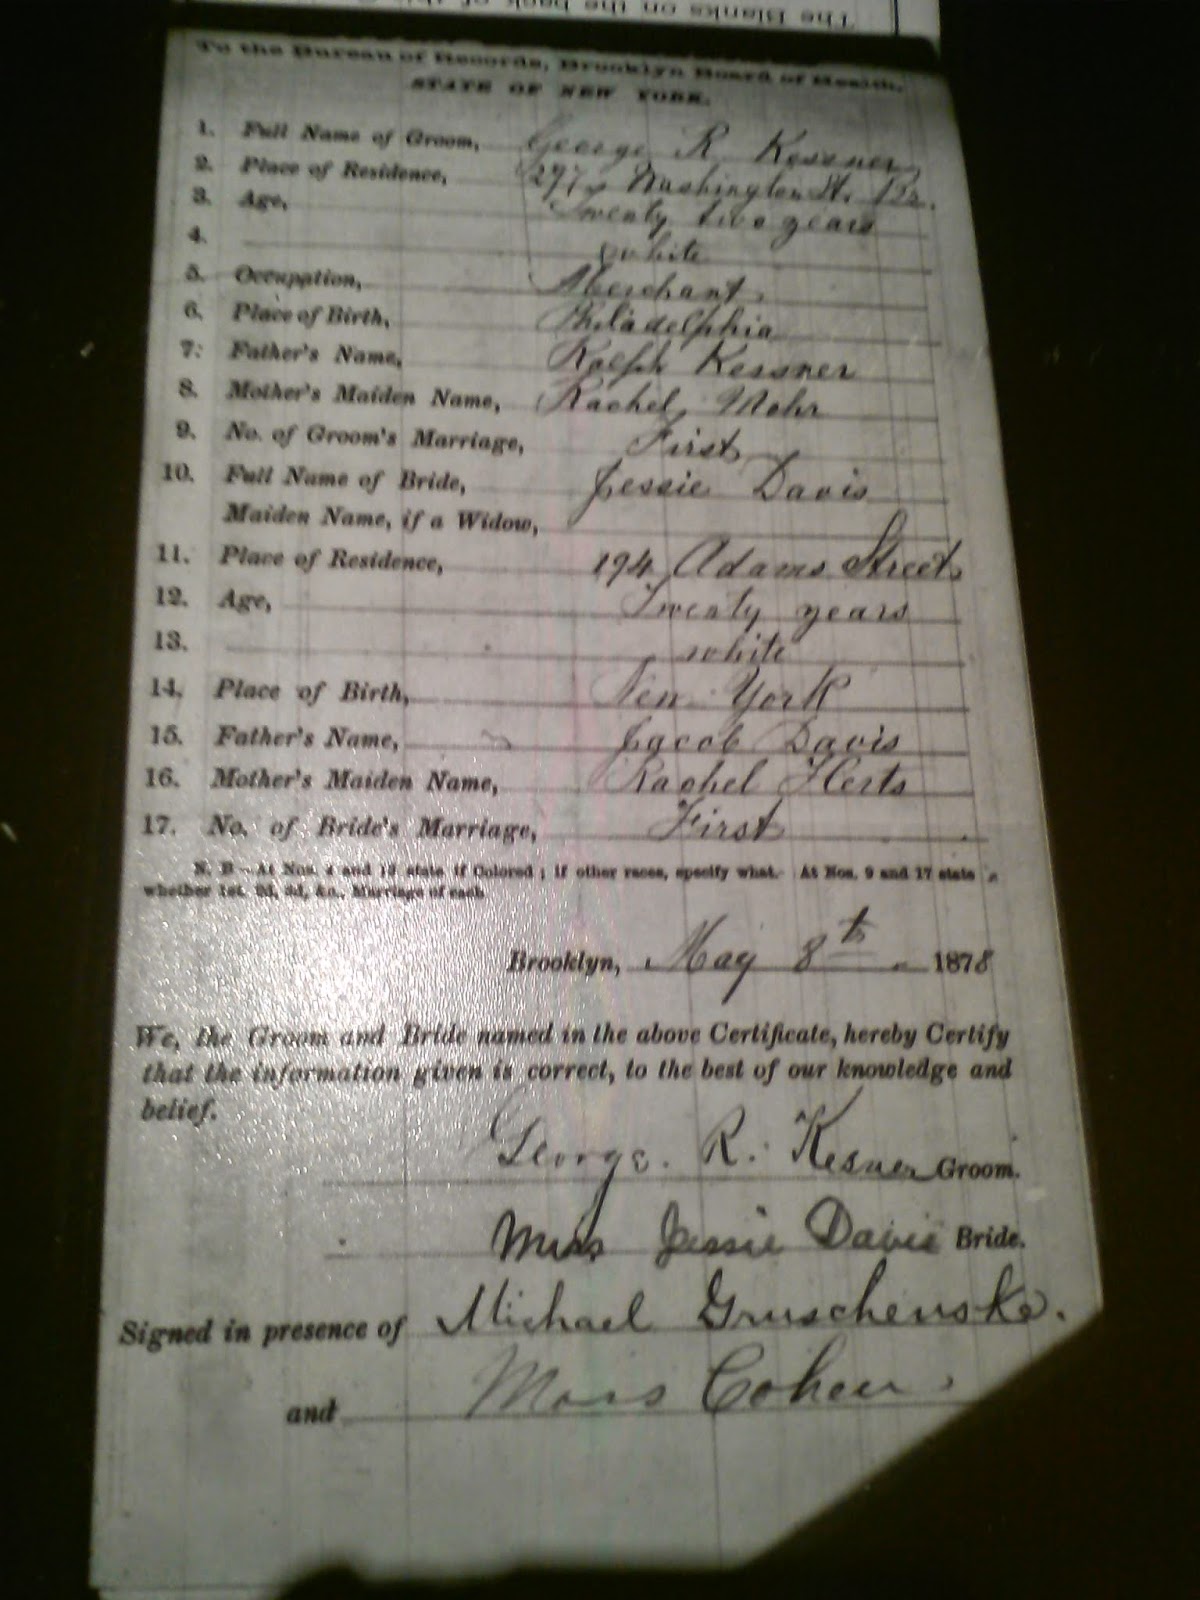 The Blanks on the back of this
To the Bureau of Records, Brooklyn Board of Health,
STATE OF NEW YORK.
1. Full Name of Groom, George R Kessner
2. Place of Residence, 297 Washington St. Br.
3. Age, Twenty two years
4. white
5. Occupation, Merchant
6. Place of Birth, Philadelphia
7. Father's Name, Ralph Kessner
8. Mother's Maiden Name, Rachel Mohr
9. No. of Groom's Marriage, First
10. Full Name of Bride, Jessie Davis
Maiden Name, if a Widow,
11. Place of Residence, 194 Adams Street
12. Age, Twenty years
13. white
14. Place of Birth, New York
15. Father's Name, Jacob Davis
16. Mother's Maiden Name, Rachel Herts
17. No. of Bride's Marriage, First
N. B.—At Nos. 4 and 13 state if Colored; if other races, specify what. At Nos. 9 and 17 state
whether 1st, 2d, 3d, &c., Marriage of each
Brooklyn, May 8th 1878
We, the Groom and Bride named in the above Certificate, hereby Certify
that the information given is correct, to the best of our knowledge and
belief.
George. R. Kesner Groom.
Miss Jessie Davis Bride.
Signed in presence of Michael Gruschenske.
and Cohen